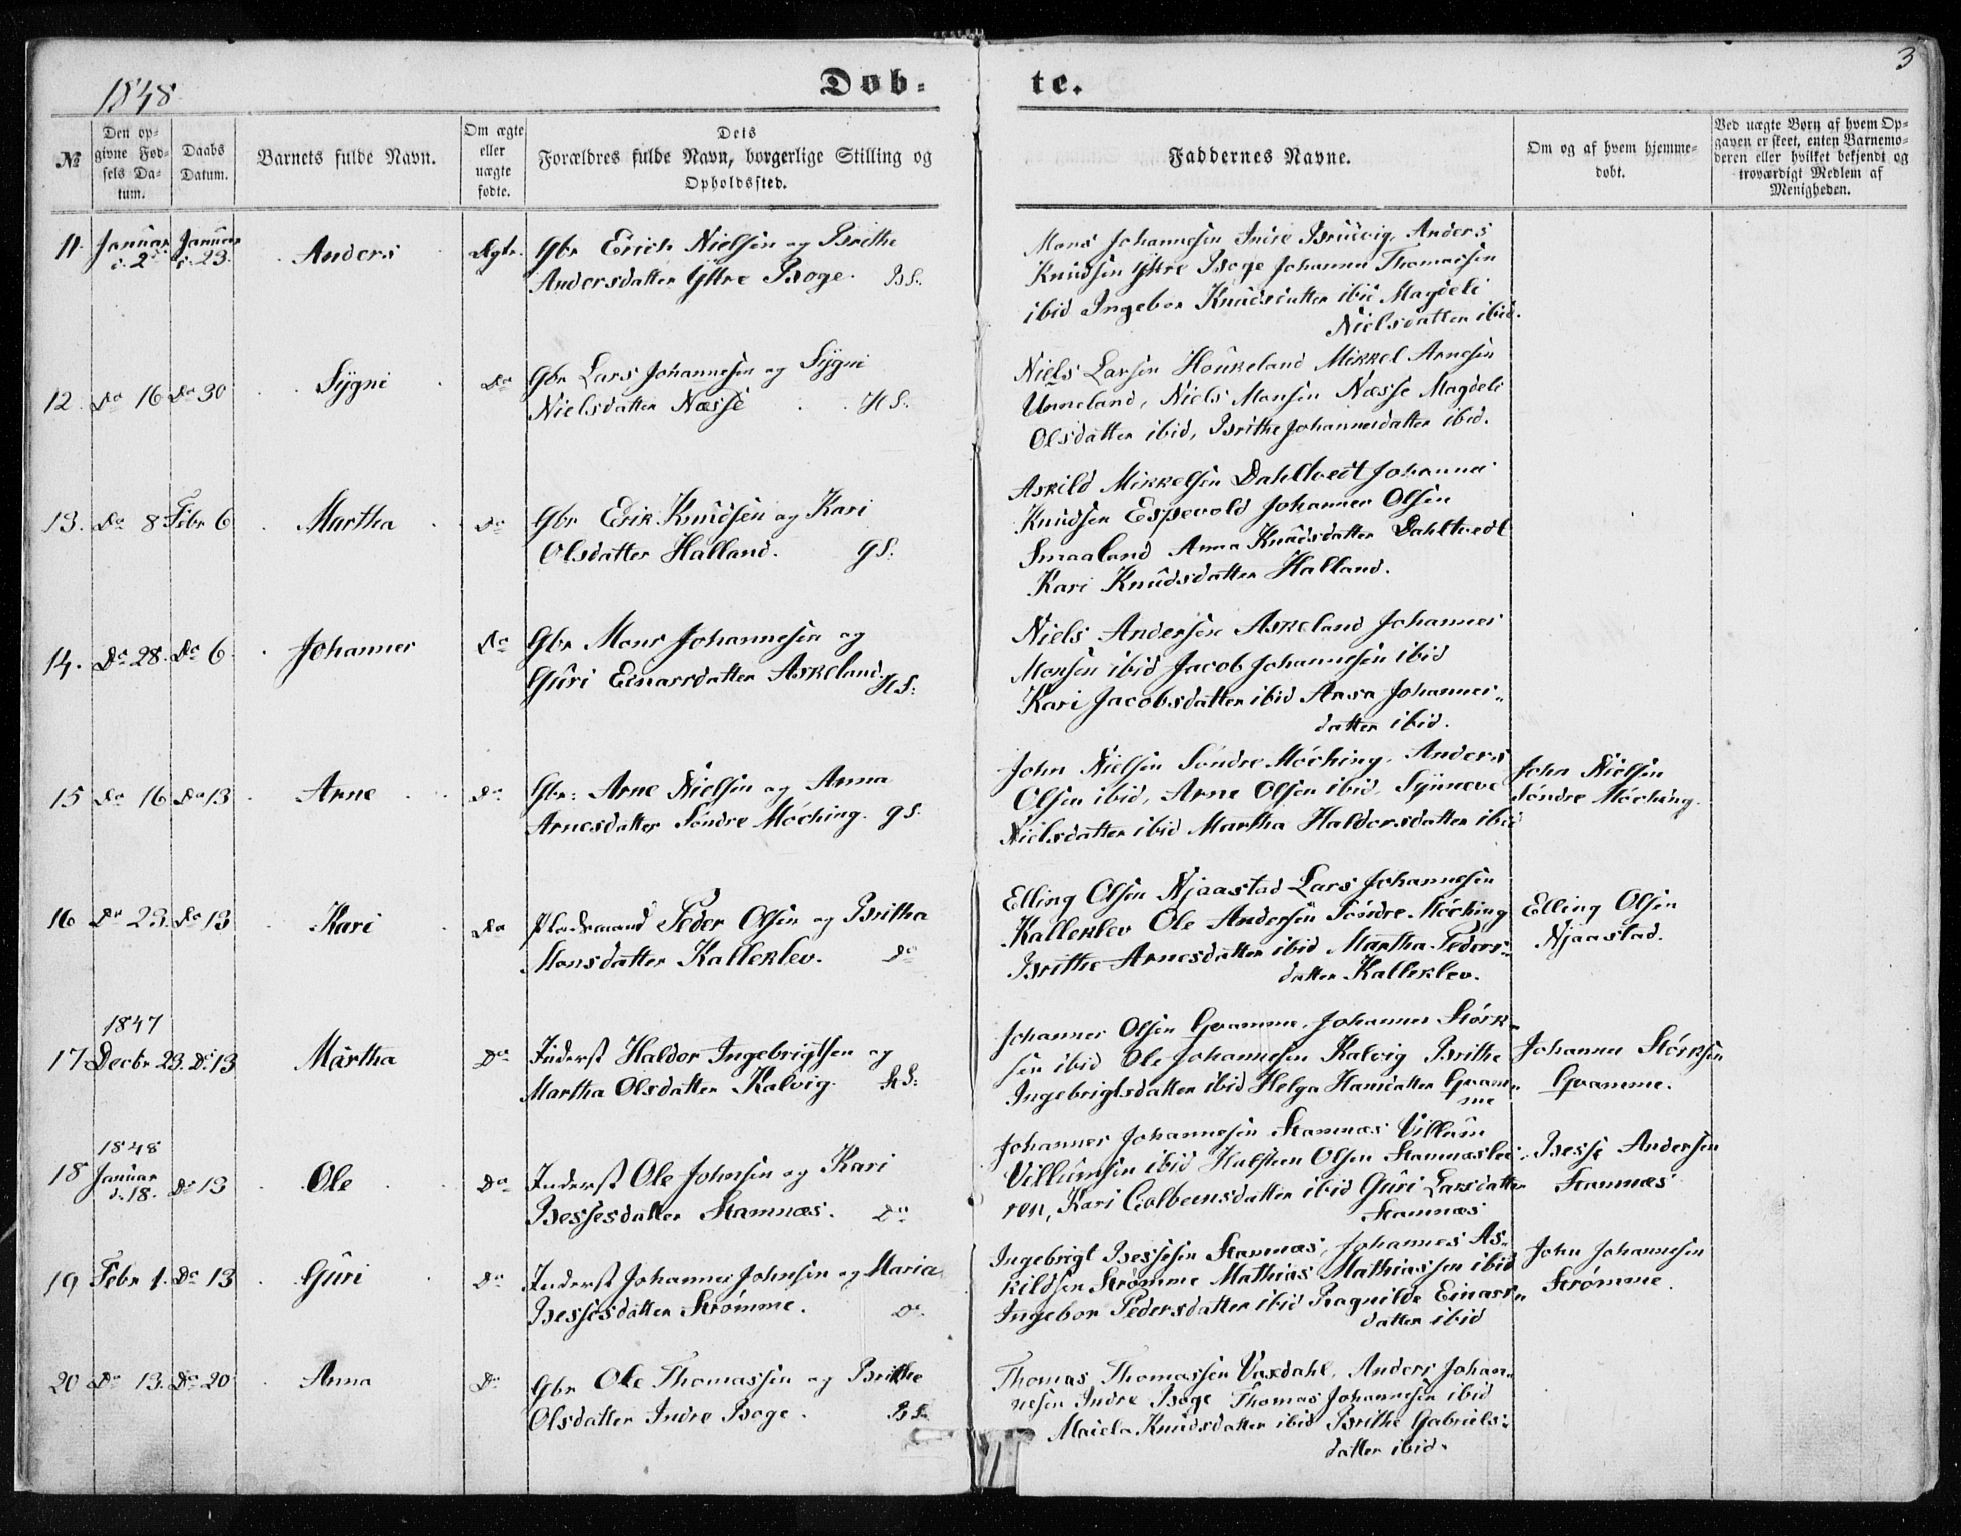 1848
Døb-
te.
3
№
Den op-
givne Fød-
sels Da-
tum.
Daabs
Datum.
Barnets fulde Navn.
Om ægte
eller
uægte
fødte.
Dets
Forældres fulde Navn, borgerlige Stilling og
Opholdssted.
Faddernes Navne.
Om og af hvem hjemme-
døbt.
Ved uægte Børn af hvem Op-
gaven er skeet, enten Barnemo-
deren eller hvilket bekjendt og
troværdigt Medlem af
Menigheden.
11. Januar d. 2 Januar d. 23. Anders Ægte. Gbr Erich Nielsen og Brithe
Andersdatter Yttre Boge. BS.
Mons Johannesen Indre Bruvig, Anders
Knudsen Yttre Boge Johannes Thomassen
ibid Ingebor Knudsdatter ibid Magdeli
Nielsdatter ibid.
12. Do 16 Do 30 Sygni Do Gbr Lars Johannesen og Sygni
Nielsdatter Næsse HS.
Niels Larsen Houkeland Mikkel Arnesen
Unneland, Niels Monsen Næsse Magdeli
Olsdatter ibid, Brithe Johannesdatter ibid.
13. Do 8 Febr 6 Martha Do Gbr Erik Knudsen og Kari
Olsdatter Halland. GS.
Askild Mikkelsen Dahltvedt Johannes
Knudsen Espevold Johannes Olsen
Smaaland Anna Knudsdatter Dahltvedt
Kari Knudsdatter Halland.
14. Do 28. Do 6. Johannes Do Gbr Mons Johannesen og
Guri Einarsdatter Askeland. HS.
Niels Andersen Askeland Johannes
Monsen ibid Jacob Johannesen ibid
Kari Jacobsdatter ibid Anna Johannes-
datter ibid.
15 Do 16 Do 13 Arne Do Gbr: Arne Nielsen og Anna
Arnesdatter Søndre Møching. GS.
John Nielsen Søndre Møching. Anders
Olsen ibid, Arne Olsen ibid, Synneve
Nielsdatter ibid Martha Haldorsdatter ibid
John Nielsen
Søndre Møching.
16 Do 23. Do 13 Kari Do Pladsmand Peder Olsen og Britha
Monsdatter Kalleklev. Do
Elling Olsen Njaastad Lars Johannesen
Kalleklev Ole Andersen Søndre Møching
Brithe Arnesdatter ibid Martha Peders-
datter Kalleklev.
Elling Olsen
Njaastad.
1847
17 Decbr 23. Do 13 Martha Do Inderst Haldor Ingebrigtsen og
Martha Olsdatter Kalvig. HS:
Johannes Olsen Gvamme, Johannes Størk-
sen ibid Ole Johannesen Kalvig Brithe
Ingebrigtsdatter ibid Helga Hansdatter Gvam-
me
Johannes Størksen
Gvamme.
1848
18 Januar d. 18. Do 13 Ole Do Inderst Ole Johnsen og Kari
Bessesdatter Stamnæs. Do
Johannes Johannesen Stamnæs Villum
Villumsen ibid Halsteen Olsen Stamnæslei-
ren, Kari Colbensdatter ibid Guri Larsdatter
Stamnæs
Besse Andersen
Stamnæs
19 Febr 1. Do 13 Guri Do Inderst Johannes Johnsen og Maria
Bessesdatter Strømme. Do
Ingebrigt Bessesen Stamnæs, Johannes As-
kildsen Strømme Mathias Mathiassen ibid
Ingebor Pedersdatter ibid Ragnilde Einars-
datter ibid
John Johannesen
Strømme.
20 Do 13. Do 20 Anna Do Gbr Ole Thomassen og Brithe
Olsdatter Indre Boge. BS.
Thomas Thomassen Vaxdahl, Anders Johan-
nesen Indre Boge Thomas Johannesen ibid
Knudsdatter ibid Brithe Gabriels-
datter ibid.